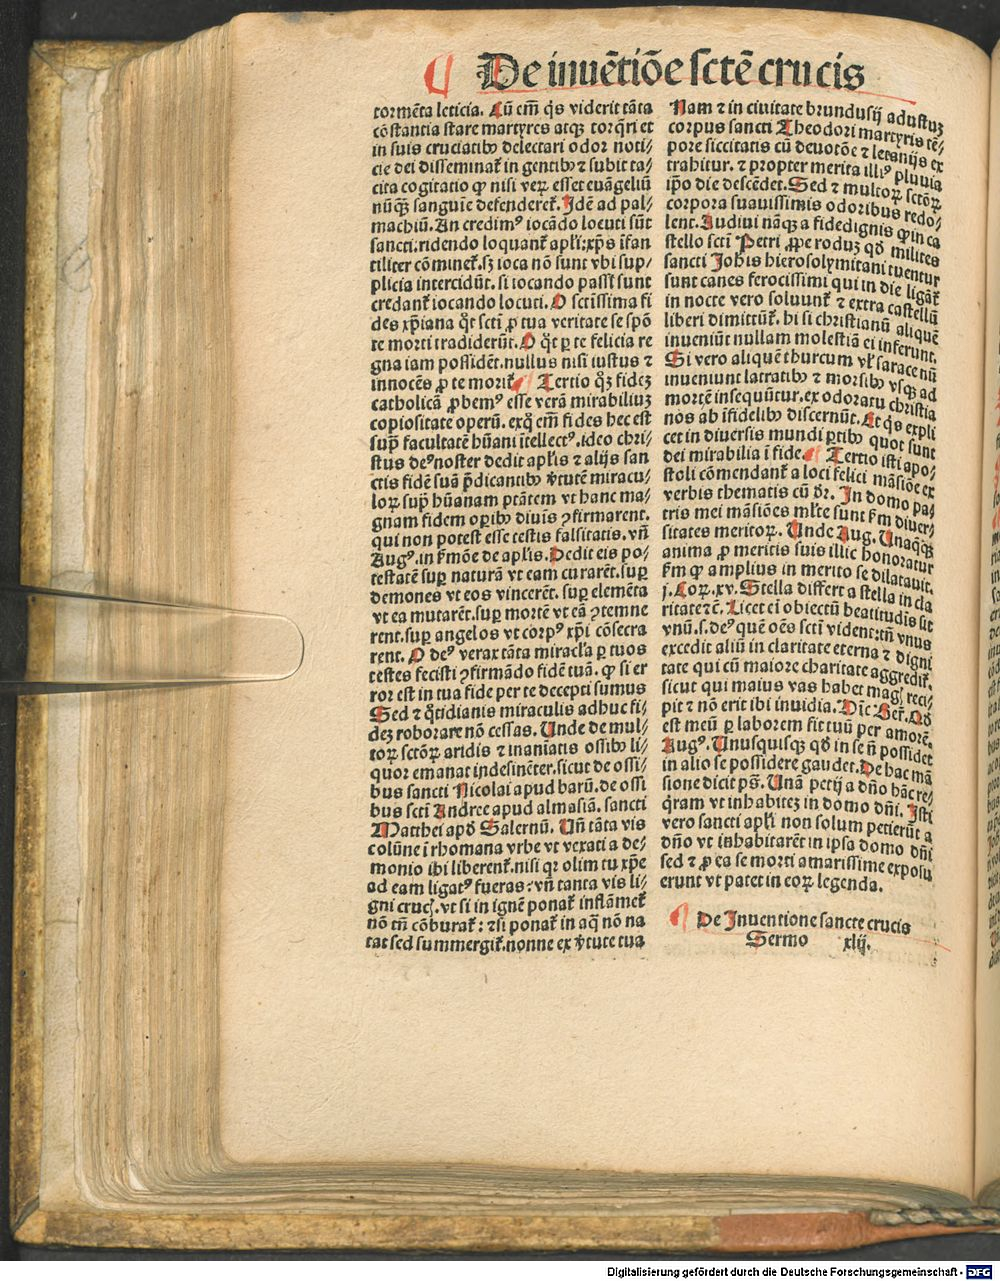 De inuētiōe sctē crucis
tormēta leticia. Cū em̄ q̇s viderit tāta
cōstantia stare martyres atqꝫ torq̄ri et
in suis cruciatibꝰ delectari odor noti⸗
cie dei disseminat᷑ in gentibꝰ ⁊ subit ta⸗
cita cogitatio ꝙ nisi veꝝ esset euāgeliū
nūq̄ꝫ sanguīe defenderet᷑. Idē ad pal⸗
machiū. An credimꝰ iocādo locuti sūt
sancti: ridendo loquant᷑ apl̄i: xp̄s īfan
tiliter cōminet᷑. sꝫ ioca nō sunt vbi sup⸗
plicia intercidūt. si iocando passi sunt
credant᷑ iocando locuti. O sctīssima fi
des xp̄iana q̄t sctī ꝓ tua veritate se spō
te morti tradiderūt. O q̄t ꝑ te felicia re
gna iam possidēt. nullus nisi iustus ⁊
innocēs ꝓ te morit᷑. Tertio q̄ꝫ fideꝫ
catholicā ꝓbemꝰ esse verā mirabiliuꝫ
copiositate operū. exq̄ em̄ fides hec est
sup̄ facultatē hūani ītellectꝰ. ideo chri⸗
stus deꝰ noster dedit apl̄is ⁊ alijs san
ctis fidē suā p̄dicantibꝰ v̄tutē miracu⸗
loꝝ sup̄ hūanam ptātem vt hanc ma⸗
gnam fidem oꝑibꝰ diuīs ꝯfirmarent.
qui non potest esse testis falsitatis. vn̄
Augꝰ. in ẜmōe de apl̄is. Dedit eis po⸗
testatē suꝑ naturā vt eam curarēt. suꝑ
demones vt eos vincerēt. suꝑ elemēta
vt ea mutarēt. suꝑ mortē vt eā ꝯtemne
rent. suꝑ angelos vt corpꝰ xp̄i cōsecra
rent. O deꝰ verax tāta miracl̄a ꝑ tuos
testes fecisti ꝯfirmādo fidē tuā. ꝙ si er
ror est in tua fide per te decepti sumus
Sed ⁊ q̄tidianis miraculis adhuc fi⸗
deꝫ roborare nō cessas. Unde de mul⸗
toꝝ sctōꝝ aridis ⁊ inaniatis ossibꝰ li⸗
quor emanat indesinēter. sicut de ossi⸗
bus sancti Nicolai apud barū. de ossi
bus sctī Andree apud almasiā. sancti
Matthei apd̄ Salernū. Un̄ tāta vis
colūne ī rhomana vrbe vt vexati a de⸗
monio ibi liberent᷑. nisi qr olim tu xp̄e
ad eam ligatꝰ fueras: vn̄ tanta vis li⸗
gni crucꝭ. vt si in ignē ponat᷑ inflāmet᷑
nō tn̄ cōburat᷑: ⁊ si ponat᷑ in aq̄ nō na
tat sed summergit᷑. nonne ex v̄tute tua
Nam ⁊ in ciuitate brundusij adustuꝫ
corpus sancti Theodori martyris tē⸗
pore siccitatis cū deuotōe ⁊ letanijs ex
trahitur. ⁊ propter merita illiꝰ pluuia
ip̄o die descēdet. Sed ⁊ multoꝝ sctōꝝ
corpora suauissimis odoribus redo⸗
lent. Audiui nāqꝫ a fidedignis ꝙ in ca
stello sctī Petri ꝓpe roduꝫ qd̄ milites
sancti Johīs hierosolymitani tuentur
sunt canes ferocissimi qui in die ligāt᷑
in nocte vero soluunt᷑ ⁊ extra castellū
liberi dimittūt᷑. hi si christianū aliquē
inueniūt nullam molestiā ei inferunt.
Si vero aliquē thurcum vl̄ saracenū
inueniunt latratibꝰ ⁊ morsibꝰ vsqꝫ ad
mortē insequūtur. ex odoratu christia
nos ab īfidelibꝰ discernūt. At q̇s expli
cet in diuersis mundi ꝑtibꝰ quot sunt
dei mirabilia ī fide. Tertio isti apo⸗
stoli cōmendant᷑ a loci felici māsiōe ex
verbis thematis cū dr̄. In domo pa⸗
tris mei māsiōes ml̄te sunt ẜm diuer⸗
sitates meritoꝝ. Unde Aug. Unaq̄qꝫ
anima ꝓ meritis suis illic honoratur
ẜm ꝙ amplius in merito se dilatauit.
j. Coꝝ. xv. Stella differt a stella in cla
ritate ⁊c̄. Licet ei obiectū beatitudīs sit
vnū. s. deꝰ quē oēs sctī vident: tn̄ vnus
excedit aliū in claritate eterna ⁊ digni
tate qui cū maiore charitate aggredit᷑.
sicut qui maius vas habet magꝭ reci⸗
pit ⁊ nō erit ibi inuidia. Dīc Ber̄. Qd̄
est meū ꝑ laborem fit tuū per amorē.
Augꝰ. Unusquisqꝫ qd̄ in se n̄ possidet
in alio se possidere gaudet. De hac mā
sione dicit ps̄. Unā petij a dn̄o hāc re⸗
q̇ram vt inhabiteꝫ in domo dn̄i. Isti
vero sancti apl̄i non solum petierūt a
dn̄o vt inhabitarēt in ipsa domo dn̄i
sed ⁊ ꝓ ea se morti amarissime exposu
erunt vt patet in eoꝝ legenda.
De Inuentione sancte crucis
Sermo xlij.
Digitalisierung gefördert durch die Deutsche Forschungsgemeinschaft - DFG